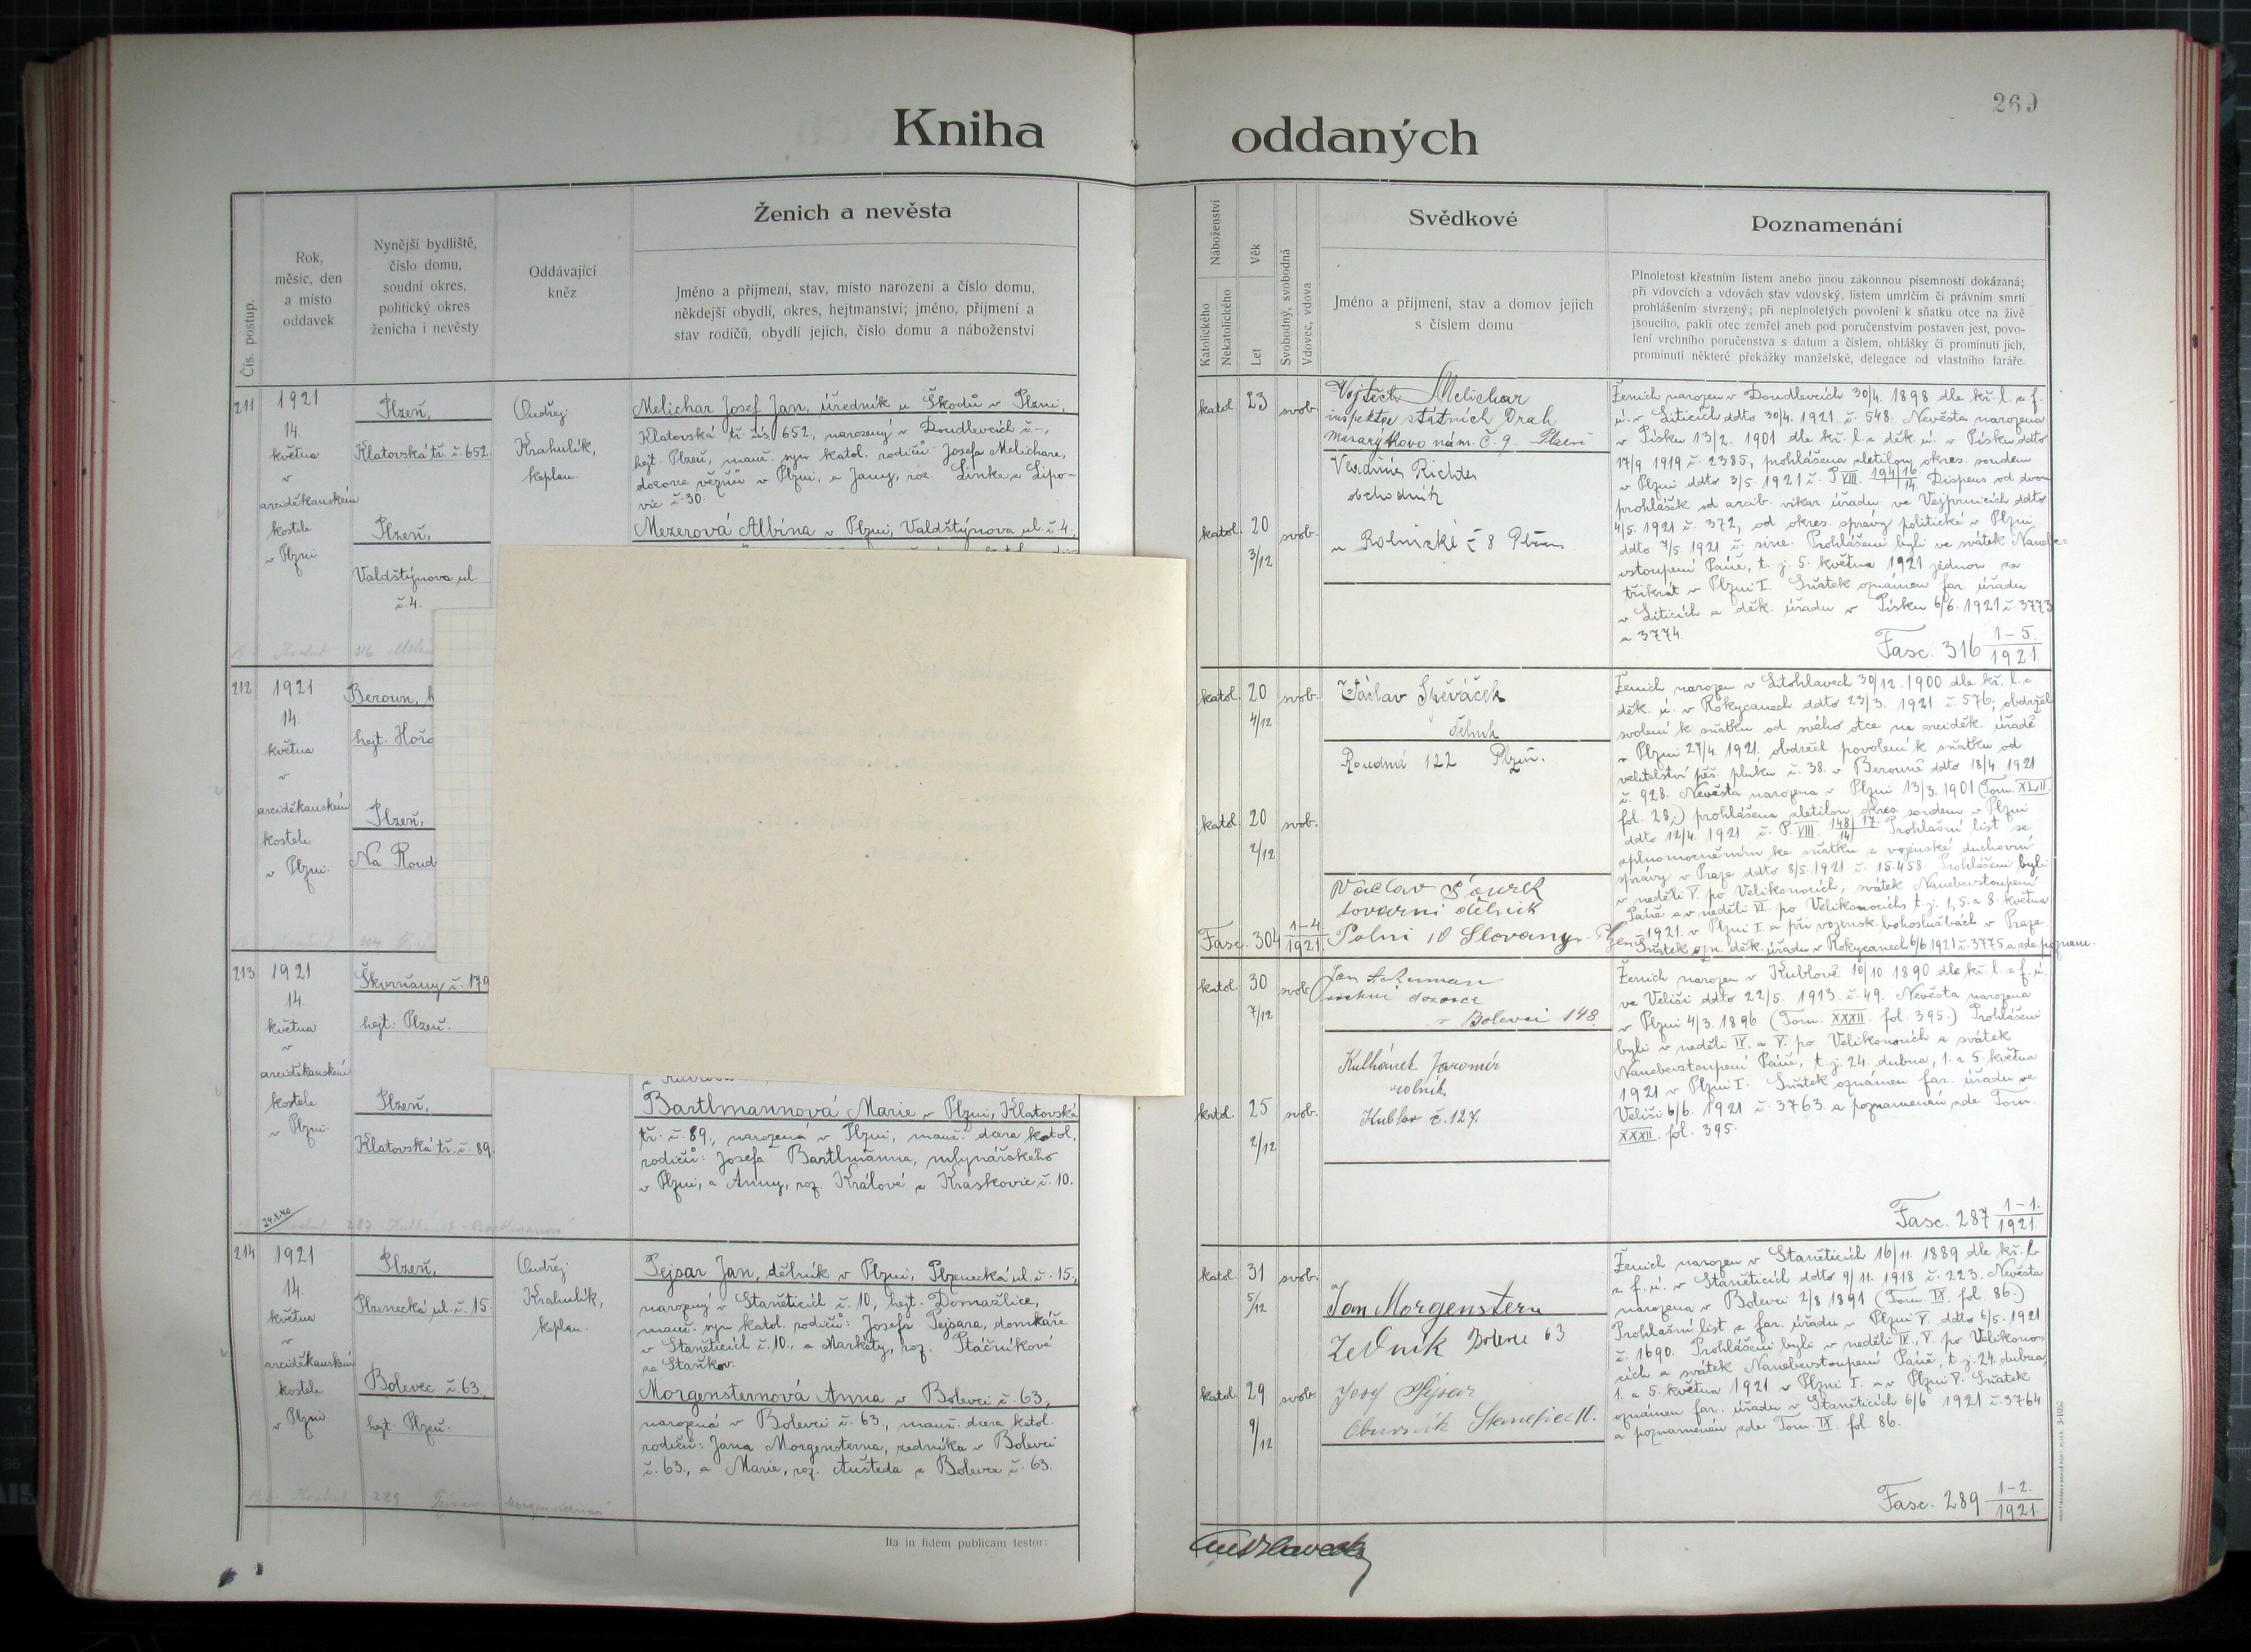 269
Kniha oddaných
Čís. postup.
Rok,
měsíc, den
a místo
oddavek
Nynější bydliště,
číslo domu,
soudní okres,
politický okres
ženicha i nevěsty
Oddávající
kněz
Ženich a nevěsta
Jméno a příjmení, stav, místo narození a číslo domu,
někdejší obydlí, okres, hejtmanství; jméno, příjmení a
stav rodičů, obydlí jejich, číslo domu a náboženství
Náboženství
Katolického
Nekatolického
Věk
Let
Svobodný, svobodná
Vdovec, vdova
Svědkové
Jméno a příjmení, stav a domov jejich
s číslem domu
Poznamenání
Plnoletost křestním listem anebo jinou zákonnou písemností dokázaná;
při vdovcích a vdovách stav vdovský, listem úmrtčím či právním smrti
prohlášením stvrzený; při neplnoletých povolení k sňatku otce na živě
jsoucího, pakli otec zemřel aneb pod poručenstvím postaven jest, povo-
lení vrchního poručenstva s datum a číslem, ohlášky či prominutí jich,
prominutí některé překážky manželské, delegace od vlastního faráře.
211
1921
14.
května
v
arciděkanském
kostele
v Plzni
Plzeň,
Klatovská tř. č. 652.
Plzeň,
Valdštýnova ul.
č. 4.
Ondřej
Krahulík,
kaplan.
Melichar Josef Jan, úředník u Škodů v Plzni,
Klatovská tř. čís. 652., narozený v Doudlevcích č. –,
hejt. Plzeň, manž. syn katol. rodičů: Josefa Melichara,
dozorce vězňů v Plzni, a Jany, roz. Linke, z Lipo-
vic č. 30.
Mezerová Albína v Plzni, Valdštýnova ul. č. 4.,
katol. 23 svob.
katol. 20 svob.
3/12
Vojtěch Melichar
inspektor státních Drah
Masarykovo nám. č. 9. Plzeň
Richter
obchodník
8 Plzeň
Ženich narozen v Doudlevcích 30/4. 1898 dle kř. l. z f.
ú. v Liticích ddto 30/4. 1921 č. 548. Nevěsta narozena
v Písku 13/2. 1901 dle kř. l. z děk. ú. v Písku ddto
17/9 1919 č. 2385, prohlášena zletilou okres. soudem
v Plzni ddto 3/5. 1921 č. P VIII. 194/16 14. Dispens od dvou
prohlášek od arcib. vikar. úřadu ve Vejprnicích ddto
4/5. 1921 č. 372, od okres. správy politické v Plzni
ddto 7/5 1921 č. sine. Prohlášeni byli ve svátek Nanebe-
vstoupení Páně, t. j. 5. května 1921 jednou za
třikrát v Plzni I. Sňatek oznámen far. úřadu
v Liticích a děk. úřadu v Písku 6/6. 1921 č. 3773
a 3774.
Fasc. 316 1–5. 1921.
212
1921
14.
května
v
arciděkanském
kostele
v Plzni.
Beroun, h
hejt. Hořo
Plzeň,
Na Roud
katol. 20 svob.
4/12
katol. 20 svob.
2/12
Václav Spěváček
Roudná 122 Plzeň.
Václav
tovární dělník
Polní 10 Slovany - Plzeň
Fasc. 304 1–4. 1921.
Ženich narozen v Litohlavech 30/12. 1900 dle kř. l. z
děk. ú. v Rokycanech ddto 23/3. 1921 č. 576, obdržel
svolení k sňatku od svého otce na arciděk. úřadě
v Plzni 27/4. 1921. obdržel povolení k sňatku od
velitelství pěš. pluku č. 38. v Berouně ddto 18/4 1921
č. 928. Nevěsta narozena v Plzni 13/3. 1901 (Tom. XLII.
fol. 28.,) prohlášena zletilou okres. soudem v Plzni
ddto 12/4. 1921 č. P. VIII. 148/14 17. Prohlašní list se
zplnomocněním ke sňatku z vojenské duchovní
správy v Praze ddto 8/5. 1921 č. 15.458. Prohlášeni byli
v neděli V. po Velikonocích, svátek Nanebevstoupení
Páně a v neděli VI. po Velikonocích, t. j. 1., 5. a 8. května
1921. v Plzni I. a při vojensk. bohoslužbách v Praze.
Sňatek ozn. děk. úřadu v Rokycanech 6/6 1921 č. 3775 a zde poznam.
213
1921
14.
května
v
arciděkanském
kostele
v Plzni.
24.X.40
Škvrňany č. 179
hejt. Plzeň.
Plzeň,
Klatovská tř. č. 89.
Bartlmannová Marie v Plzni, Klatovská
tř. č. 89., narozená v Plzni, manž. dcera katol.
rodičů: Josefa Bartlmanna, mlynářského
v Plzni, a Anny, roz. Králové z Kraskovic č. 10.
katol. 30 svob.
7/12
katol. 25 svob.
2/12
Jan
dozorce
v Bolevci 148.
Kulhánek Jaromír
rolník
Kublov č. 127.
Ženich narozen v Kublově 10/10 1890 dle kř. l. z f. ú.
ve Veliši ddto 22/5. 1913. č. 49. Nevěsta narozena
v Plzni 4/3. 1896 (Tom. XXXII. fol. 395.) Prohlášeni
byli v neděli IV. a V. po Velikonocích a svátek
Nanebevstoupení Páně, t. j. 24. dubna, 1. a 5. května
1921 v Plzni I. Sňatek oznámen far. úřadu ve
Veliši 6/6. 1921 č. 3763. a poznamenán zde Tom.
XXXII. fol. 395.
Fasc. 287 1–1. 1921.
214
1921
14.
května
v
arciděkanském
kostele
v Plzni
Plzeň,
Plzenecká ul. č. 15.
Bolevec č. 63,
hejt. Plzeň.
Ondřej
Krahulík,
kaplan.
Pejsar Jan, dělník v Plzni, Plzenecká ul. č. 15.,
narozený v Staněticích č. 10, hejt. Domažlice,
manž. syn katol. rodičů: Josefa Pejsara, domkáře
v Staněticích č. 10., a Markéty, roz. Ptáčníkové
ze Staňkov.
Morgensternová Anna v Bolevci č. 63,
narozená v Bolevci č. 63., manž. dcera katol.
rodičů: Jana Morgensterna, zedníka v Bolevci
č. 63., a Marie, roz. Aušteda z Bolevce č. 63.
katol. 31 svob.
5/12
katol. 29 svob.
9/12
Jan Morgenstern
Zedník Bolevec 63
Josef Pejsar
Obuvník Stanětice 11.
Ženich narozen v Staněticích 16/11. 1889 dle kř. l.
z f. ú. v Staněticích ddto 9/11. 1918 č. 223. Nevěsta
narozena v Bolevci 2/8 1891 (Tom. IX. fol. 86.)
Prohlašní list z far. úřadu v Plzni V. ddto 6/5. 1921
č. 1690. Prohlášeni byli v neděli IV., V. po Velikono-
cích a svátek Nanebevstoupení Páně, t. j. 24. dubna,
1. a 5. května 1921 v Plzni I. a v Plzni V. Sňatek
oznámen far. úřadu v Staněticích 6/6 1921 č. 3764
a poznamenán zde Tom. IX. fol. 86.
Fasc. 289 1–2. 1921.
Ita in fidem publicam testor: